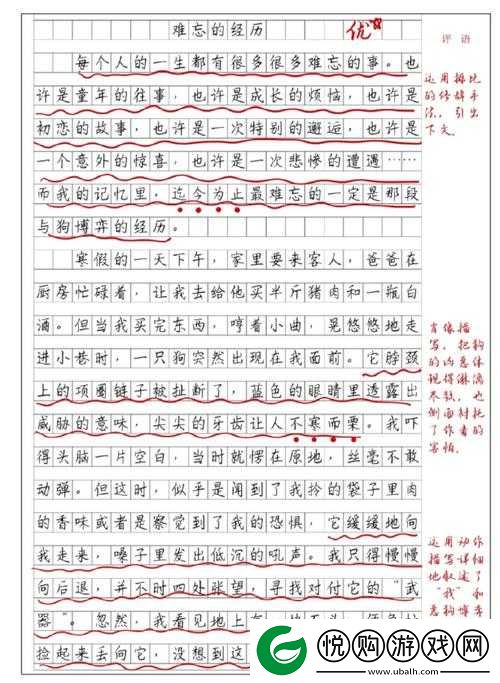 难忘的经历
优
评语
每个人的一生都有很多很多难忘的事。也
许是童年的往事，也许是成长的烦恼，也许是
初恋的故事，也许是一次特别的邂逅，也许是
一个意外的惊喜，也许是一次悲惨的遭遇……
而我的记忆里，迄今为止最难忘的一定是那段
与狗博弈的经历。
运用排比
的修辞手
法，引出
下文。
寒假的一天下午，家里要来客人，爸爸在
厨房忙碌着，让我去给他买半斤猪肉和一瓶白
酒。但当我买完东西，哼着小曲，晃悠悠地走
进小巷时，一只狗突然出现在我面前。它脖颈
上的项圈链子被扯断了，蓝色的眼睛里透露出
威胁的意味，尖尖的牙齿让人不寒而栗。我吓
得头脑一片空白，当时就愣在原地，丝毫不敢
动弹。但这时，似乎是闻到了我拎的袋子里肉
的香味或者是察觉到了我的恐惧，它缓缓地向
我走来，嗓子里发出低沉的吼声。我只得慢慢
向后退，并不时四处张望，寻找对付它的“武
器”。忽然，我看见地上
捡起来丢向它，没想到这
肖像描
写，把狗
的凶恶体
现得淋漓
尽致，也
侧面衬托
了作者的
害怕。
运用动作
描写详细
地叙述了
“我”和
恶狗博弈
悦购游戏网
www.ubalh.com